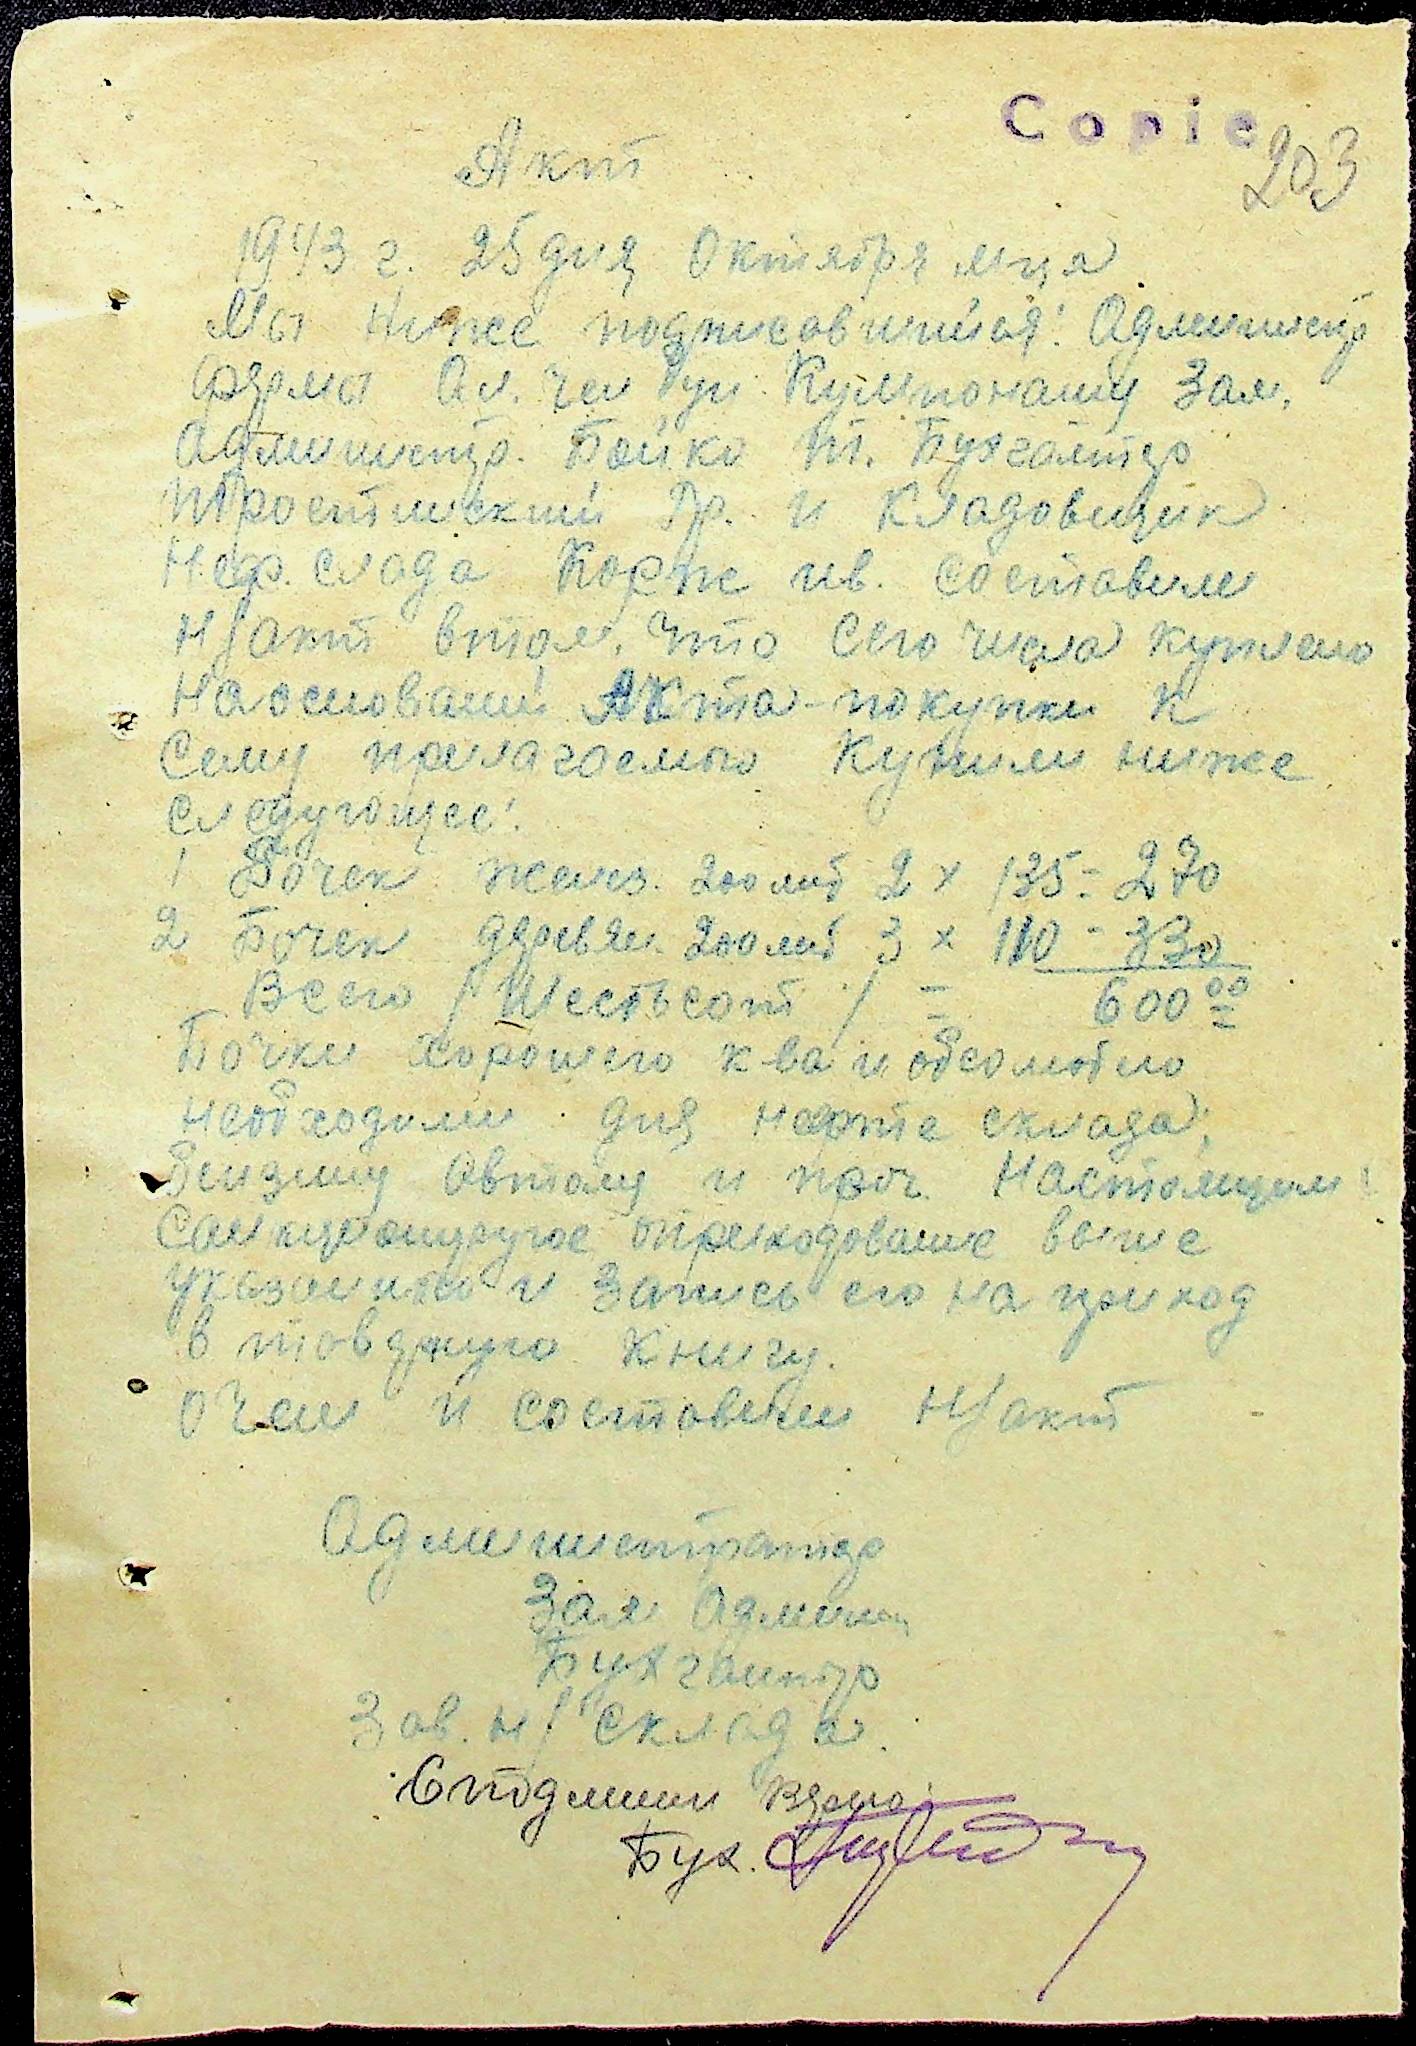 Copie
203
Акт
1943 г. 25 дня Октября м-ця
Мы ниже подписавшийся: Администр
фермы Ал. Кумпонашу Зам.
Администр. Бойко Бухгалтер
Простинский Гр. и Кладовщик
Неф. слада Корж ив. составили
Н/акт втом, что сего числа куплено
на оснований Акта-покупки к
Сему прилагаемого Купили ниже
следующее:
1 Бочек желез. 200 лит 2 х 135 = 270
2 Бочек деревян. 200 лит 3 х 110 - 330
Всего / Шестьсот / = 600 00
Бочки хорошего к-ва и абсолютно
необходими для нефте склада,
бензину автолу и проч. Настоящим
оприходование више
указанного и запись его на приход
в товерную книгу.
О чем и составили Н/акт
Администратер
Зам Админ
Бухгалтер
Зав. н/склада.
С подлиним верно:
Бух.